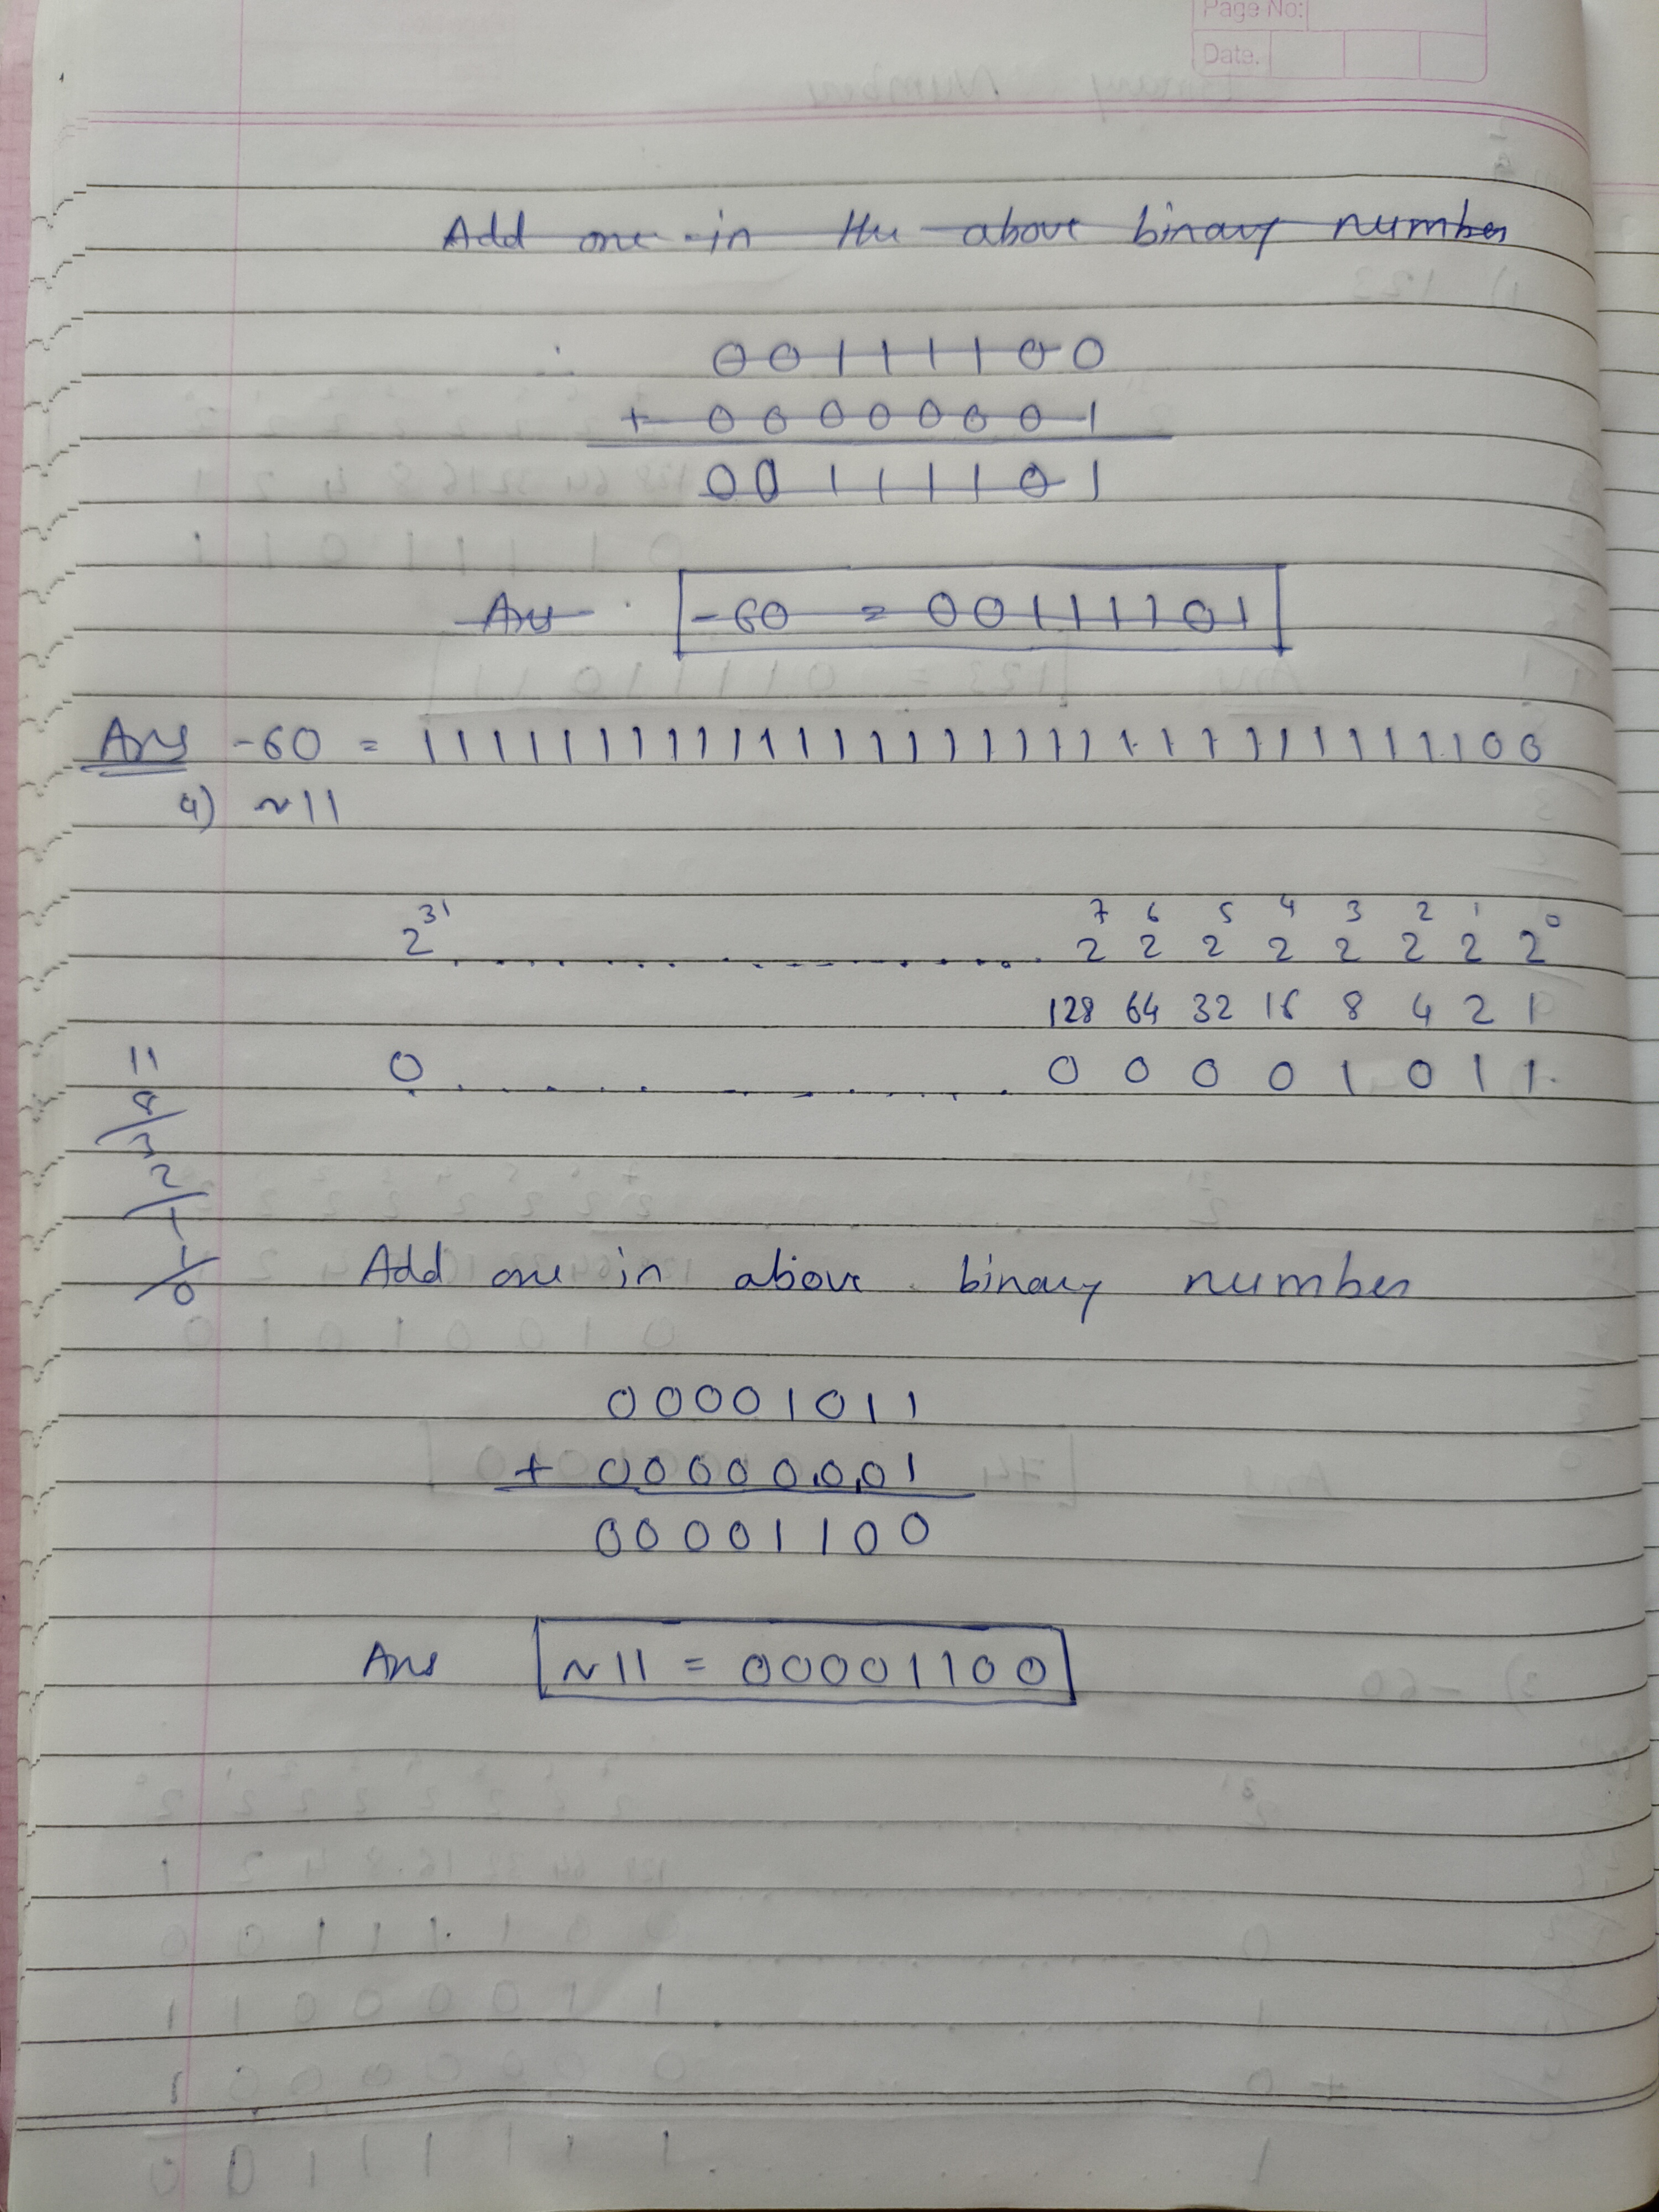 Page No:
Date.
Add one in the above binary number
00111100
+ 00000001
00111101
Ans -60 = 00111101
Ans -60 = 11111111111111111111111111111100
4) ~11
2^31 . . . . . . . . . . . . 2^7 2^6 2^5 2^4 2^3 2^2 2^1 2^0
128 64 32 16 8 4 2 1
0 . . . . . . . . . . 0 0 0 0 1 0 1 1
11
8
3
2
1
1
0
Add one in above binary number
00001011
+ 00000001
00001100
Ans ~11 = 00001100